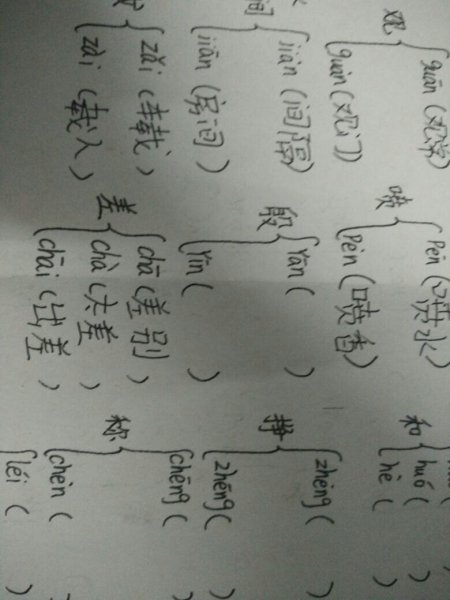 观
guān (观赏)
guàn (观门)
间
jiàn (间隔)
jiān (房间)
zǎi (转载)
zài (载入)
喷
pēn (喷水)
pèn (喷香)
殷
yān ( )
yīn ( )
差
chā (差别)
chà (太差)
chāi (出差)
和
huó ( )
hè ( )
挣
zhèng ( )
zhēng ( )
称
chēng ( )
chèn ( )
léi ( )